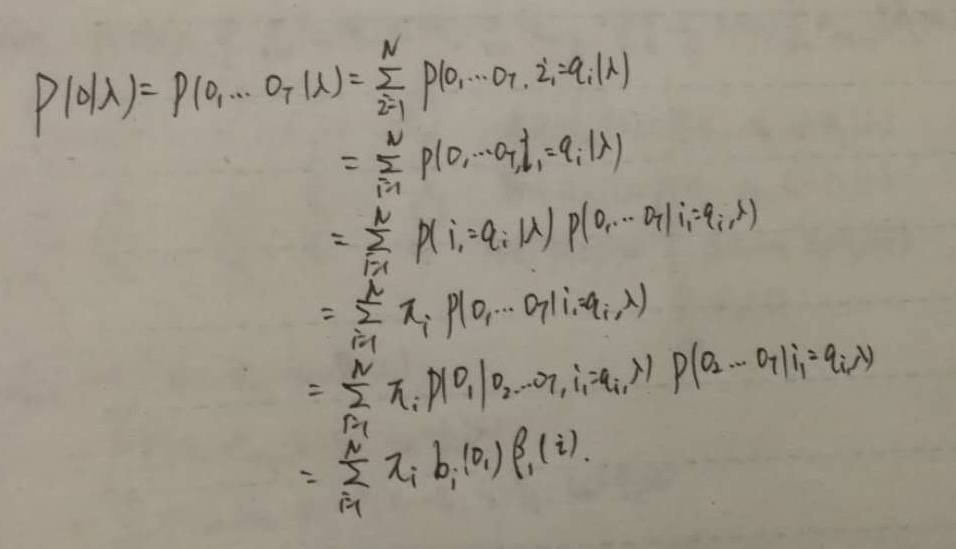 P(O|λ) = P(O₁ … O_T |λ) = ∑_{i=1}^{N} P(O₁ … O_T, i₁ = q_i |λ)
= ∑_{i=1}^{N} P(O₁ … O_T, i₁ = q_i |λ)
= ∑_{i=1}^{N} P(i₁ = q_i |λ) P(O₁ … O_T | i₁ = q_i, λ)
= ∑_{i=1}^{N} π_i P(O₁ … O_T | i₁ = q_i, λ)
= ∑_{i=1}^{N} π_i P(O₁ | O₂ … O_T, i₁ = q_i, λ) P(O₂ … O_T | i₁ = q_i, λ)
= ∑_{i=1}^{N} π_i b_i(O₁) β₁(i).